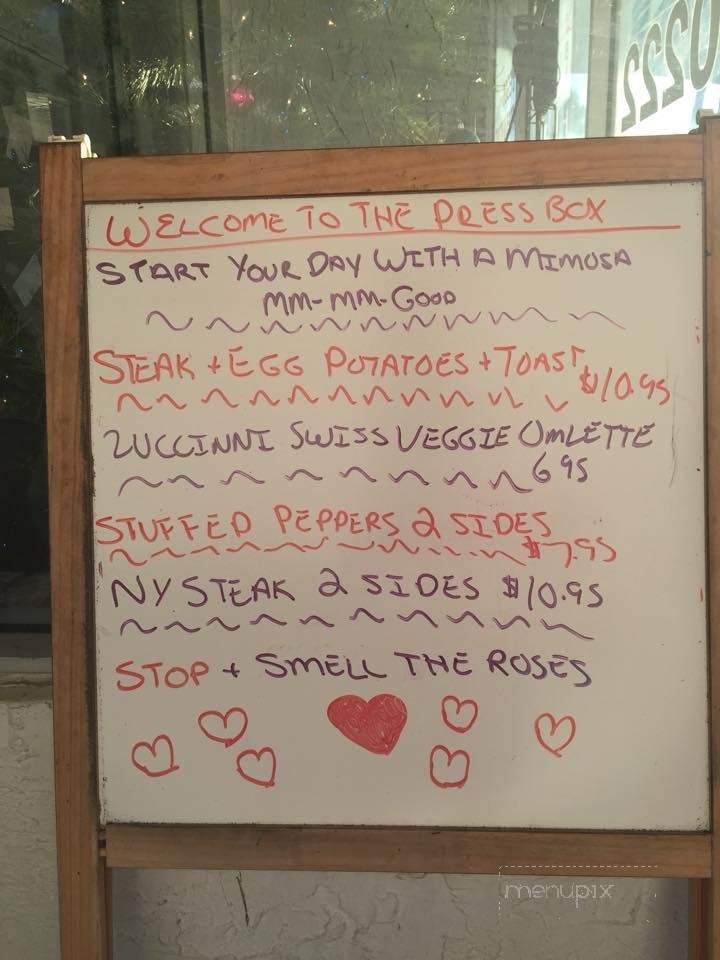 WELCOME TO THE PRESS BOX
START YOUR DAY WITH A MIMOSA
MM-MM-GOOD
STEAK + EGG POTATOES + TOAST
$10.95
ZUCCINNI SWISS VEGGIE OMLETTE
6 95
STUFFED PEPPERS 2 SIDES
$7.95
NY STEAK 2 SIDES $10.95
STOP + SMELL THE ROSES
menupix